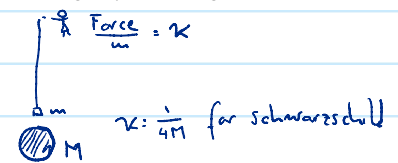 Force/m = κ
m
κ = 1/4M for schwarzschild
M